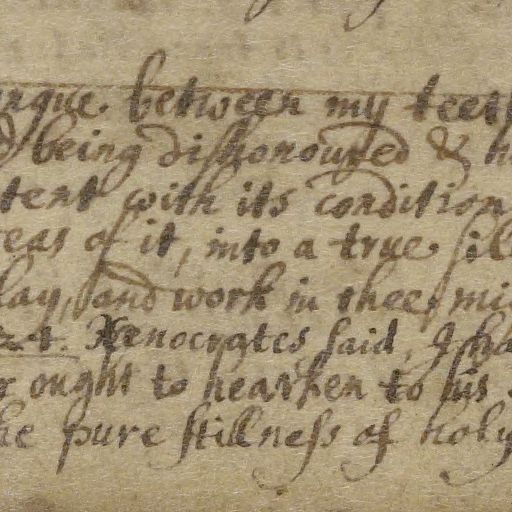 ngue. between my teet
being dishonoured & h
tent with its condition
eas of it, into a true sill
lay, and work in thee, mi
Xenocrates said, I ha
r ought to hearken to his
he pure stillness of holy